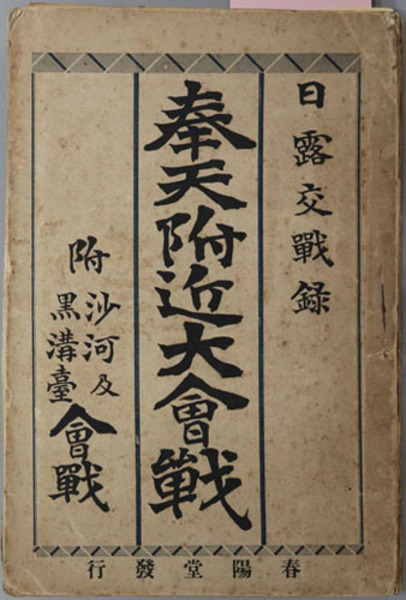 日露交戰録
奉天附近大會戰
附 沙河及黒溝臺會戰
春陽堂發行